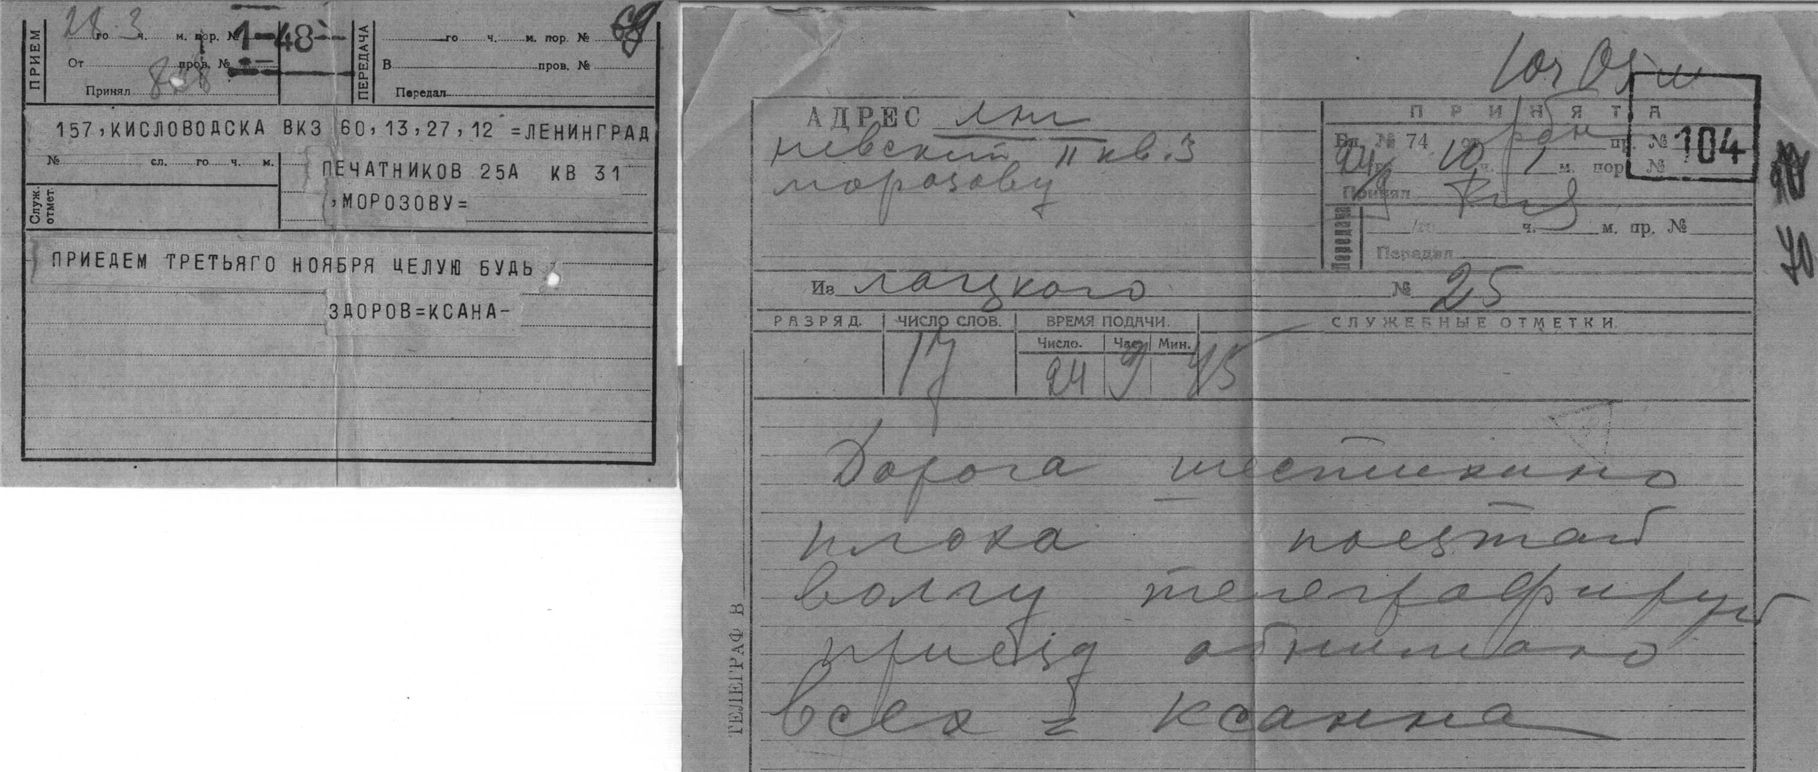 28 3
го ч. м. пор. №
1-48-
От пров. №
Принял 898
ПРИЕМ
ПЕРЕДАЧА
го ч. м. пор. №
69
В пров. №
Передал
157,КИСЛОВОДСКА ВКЗ 60,13,27,12 =ЛЕНИНГРАД
№ сл. го ч. м.
ПЕЧАТНИКОВ 25А КВ 31
Служ. отмет.
,МОРОЗОВУ=
ПРИЕДЕМ ТРЕТЬЯГО НОЯБРЯ ЦЕЛУЮ БУДЬ
ЗДОРОВ=КСАНА-
10ч 05м
АДРЕС лнг
невский 11 кв.3
морозову
ПРИНЯТА
Бл. № 74 пр. №
104
24 10 ч. 1 м. пор. №
Принял
Передача
ч. м. пр. №
Передал
70
Из лацкого № 25
РАЗРЯД. ЧИСЛО СЛОВ. ВРЕМЯ ПОДАЧИ. СЛУЖЕБНЫЕ ОТМЕТКИ.
Число. Час. Мин.
17 24 9 45
Дорога шестикино
плоха поезжай
волгу телеграфируй
приезд обнимаю
всех = Ксанна
ТЕЛЕГРАФ В